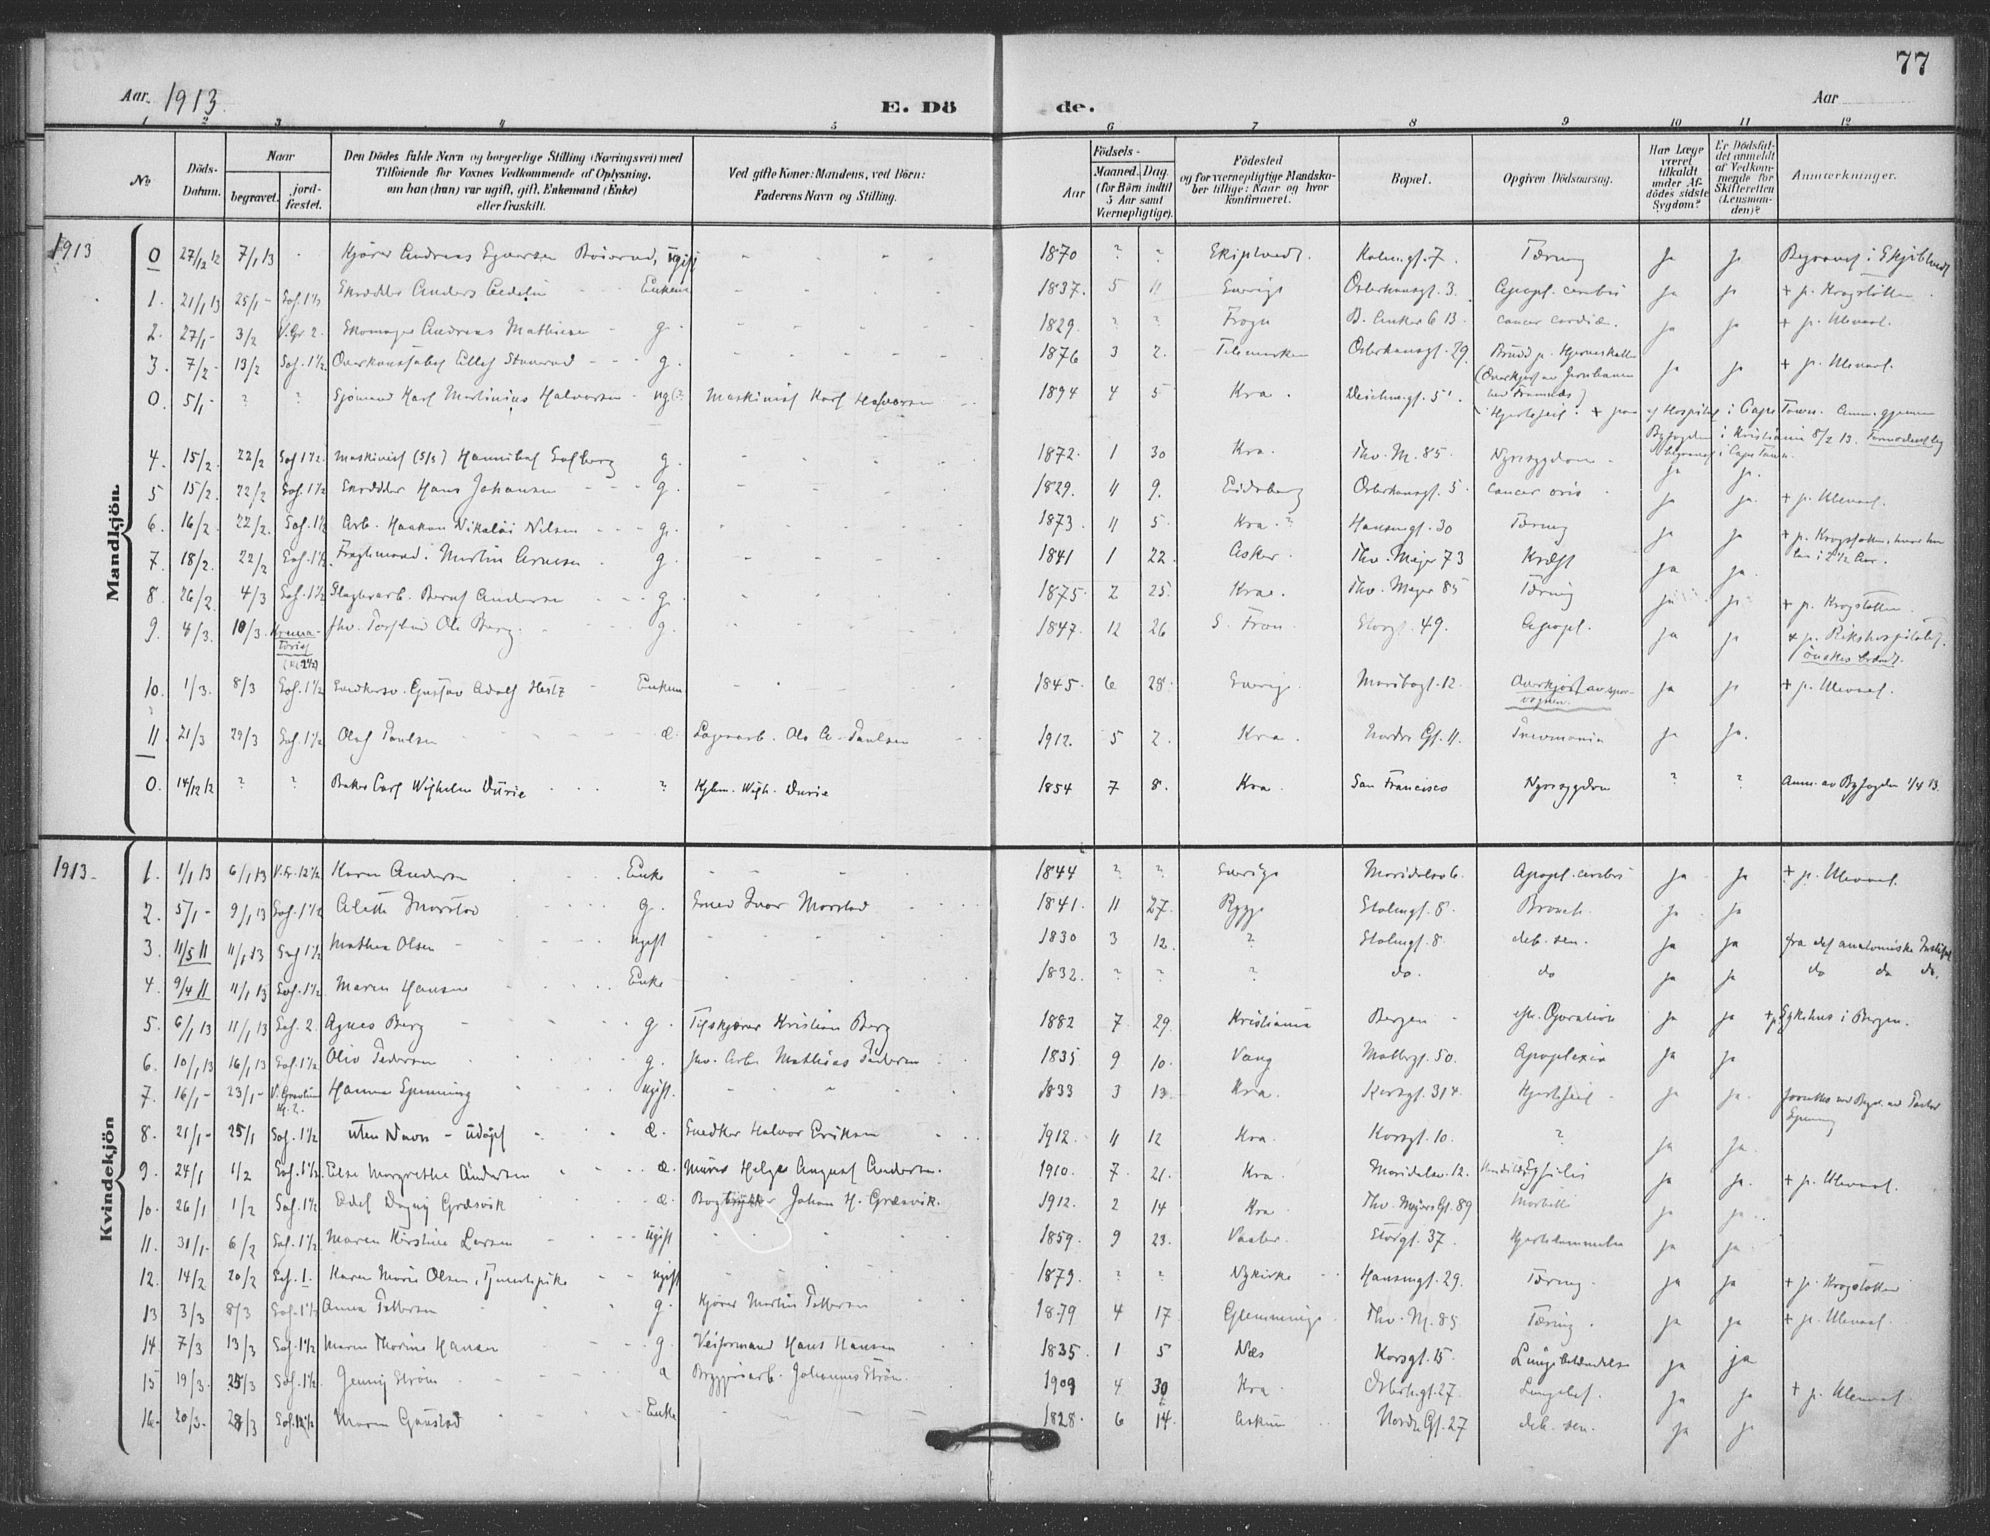 77
Aar 1913
E. Dö de.
Aar
1 2 3 4 5 6 7 8 9 10 11 12
No
Döds-Datum.
Naar
begravet.
jord-fæstet.
Den Dödes fulde Navn og borgerlige Stilling (Næringsvei) med
Tilføiende for Voxnes Vedkommende af Oplysning,
om han (hun) var ugift, gift, Enkemand (Enke)
eller fraskilt.
Ved gifte Koner: Mandens, ved Börn:
Faderens Navn og Stilling.
Födsels-
Aar
Maaned. Dag.
(for Börn indtil
5 Aar samt
Værnepligtige).
Födested
og for værnepligtige Mandska-
ber tillige: Naar og hvor
konfirmeret.
Bopæl.
Opgiven Dödsaarsag.
Har Læge
været
tilkaldt
under Af-
dödes sidste
Sygdom?
Er Dödsfal-
det anmeldt
af Vedkom-
mende for
Skifteretten
(Lensman-
den)?
Anmærkninger.
Mandkjön.
1913 0 27/12 12 7/1 13 Kjører Andreas ugift 1870 ? ? Tæring ja ja
1. 21/1 13 25/1 - Sof. 1½ Skrædder Anders Enkem 1837. 5 11 Sverige Osterhausgt. 3. Apopl. cerebri ja ja + p. Krogstøtten.
2. 27/1 - 3/2 V. Gr. 2. Skomager Andreas Mathiesen g. 1829. ? ? Frogn cancer cardiæ. ja ja + p. Ulevaal.
3. 7/2 - 13/2 Sof. 1½ g. 1876 3 2. Telemarken Osterhausgt. 29. Brudd p. Hjerneskallen ja ja + p. Ulevaal.
0. 5/1 - ? ? Sjømand Karl Martinius Halvorsen - ug (?) Maskinist Karl Halvorsen 1894 4 5 Kra. Deichmsgt. 5. Hjertefeil i Cape Town.
Byfogden i Kristiania 8/2 13. Formodentlig
begravet i Cape Town.
4. 15/2. 22/2 Sof. 1½. Maskinist Hannibal Solberg g. 1872. 1 30 Kra. Thv. M. 85. Nyresygdom ja ja.
5 15/2. 22/2 Sof. 1½ Skrædder Hans Johansen g. 1829. 11 9. Eidsberg Osterhausgt. 5 cancer oris ja ja. + p. Ulevaal.
6. 16/2. 22/2. Sof. 1½ Arb. Haakon Nikolai Nilsen g. 1873. 11 5. Kra. ? Hausmgt. 30 Tæring ja ja + p. Krogstøtten, hvor han
7. 18/2. 22/2 Sof. 1½ Martin Arnesen g. 1841 1 22. Asker. Thv. Meyer 73 Kræft ja ja. i 2½ Aar.
8 26/2. 4/3 Sof. 1½ Slagterarb. Bernt Andersen g. 1875. 2 25. Kra. Thv. Meyer 85 Tæring ja ja. + p. Krogstøtten.
9. 4/3. 10/3. Krema-
toriet fhv. Ole Berg. g. 1847. 12 26 S. Fron. Storgt. 49. Apopl. ja ja + p. Rikshospitalet.
ønskes brændt.
10. 1/3. 8/3 Sof. 1½ Snedkersv. Gustav Adolf Hertz Enkem 1845. 6 28. Sverige. Maribogt. 12. Overkjørt av spor-
vognen. ja ja + p. Ulevaal.
11. 21/3 29/3 Sof. 1½ Olaf Paulsen æ. Lagerarb. Ole A. Paulsen 1912. 5 2. Kra. Nordre Gt. 11. Pneumonia ja ja.
0. 14/12 12 ? ? Baker Carl Wilhelm Durie ? Kjbm. Wilh. Durie 1854 7 8. Kra. San Francisco Nyresygdom ? ? Anm. av Byfogden 1/4 13.
Kvindekjön
1913. 1. 1/1 13 6/1 13 V. Gr. 12½ Karen Andersen Enke 1844 ? ? Sverige Apopl. cerebri ja ja + p. Ulevaal.
2. 5/1 - 9/1 13 Sof. 1½ Alette Morstad g. Ivar Morstad 1841. 11 27. Rygge Stolmgt. 8. Bronch. ja ja
3 11/5 11 11/1 13 Sof 1½ Mathea Olsen ugift 1830 3 12. ? Stolmgt. 8. deb. sen. ja ja fra det anatomiske Institut
4. 9/4 11 11/1 13 Sof. 1½. Maren Hansen Enke 1832. ? ? ? do. do ja ja do do do.
5. 6/1 13 11/1 13 Sof. 2. Agnes Berg g. Tilskjærer Kristian Berg 1882 7. 29. Kristiania Bergen - eft. Operation ja ja + p. Sykehus i Bergen.
6. 10/1 13 16/1 13 Sof. 1½ Oliv Pedersen g. fhv. Arb. Mathias Pedersen 1835 9 10. Vang Møllergt. 50. Apoplexia ja ja
7. 16/1 - 23/1 - V. Gravlund
Kl. 2. Hanna Spenning ugift. 1833 3 13. Kra. Korsgt. 314 Hjertefeil ja ja.
8. 21/1 - 25/1 Sof. 1½ uten Navn - udøpt æ. Snedker Halvor Eriksen 1912. 11 12 Kra. Korsgt. 10. ? ja ja.
9. 24/1 1/2 Sof. 1½ Else Margrethe Andersen æ. Murer Helge August Andersen. 1910. 7. 21. Kra. Maridalsv. 12. Syfilis ja ja. + p. Ulevaal.
10. 26/1 1/2 Sof. 1½ Edel Dagny Græsvik æ. Johan H. Græsvik. 1912. 2 14 Kra Thv. Meyers Gt. 89 Morbilli ja ja
11. 31/1 - 6/2 Sof. 1½. Maren Kirstine Larsen ugift 1859. 9 23. Vaaler. Storgt. 37. ja ja.
12. 14/2 20/2 Sof. 1. Karen Marie Olsen, Tjenestepike ugift 1879. ? ? Nykirke Hausmgt. 29. Tæring. ja ja + p. Krogstøtten
13 3/3 8/3 Sof. 1½ Anna Pettersen g. Kjører Martin Pettersen 1879 4 17 Glemminge. Thv. M. 85 Tæring. ja ja + p. Ulevaal.
14. 7/3 13/3 Sof. 1½ Maren Thorine Hansen g. Veiformand Hans Hansen 1835. 1 5 Næs Korsgt. 15. Lungebetændelse ja ja
15 19/3. 25/3 Sof. 1½. Jenny Strøm æ Bryggeriarb. Johannes Strøm. 1909 4 30 Kra. Osterh.gt. 27. ja ja + p. Ulevaal.
16. 20/3. 28/3 Sof. 12½ Maren Gaustad Enke 1828. 6 14. Askim Nordre Gt. 27 deb. sen. ja ja